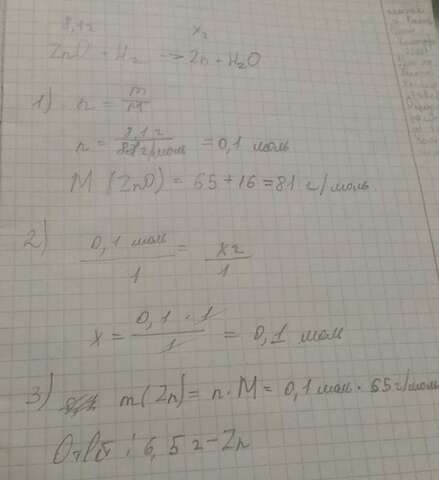 8,1г x г
ZnO + H₂ → Zn + H₂O
1) n = m/M
n = 8,1 г / 81 г/моль = 0,1 моль
M (ZnO) = 65 + 16 = 81 г/моль
2) 0,1 моль / 1 = x г / 1
x = 0,1 · 1 / 1 = 0,1 моль
3) m (Zn) = n · M = 0,1 моль · 65 г/моль
Ответ: 6,5 г - Zn